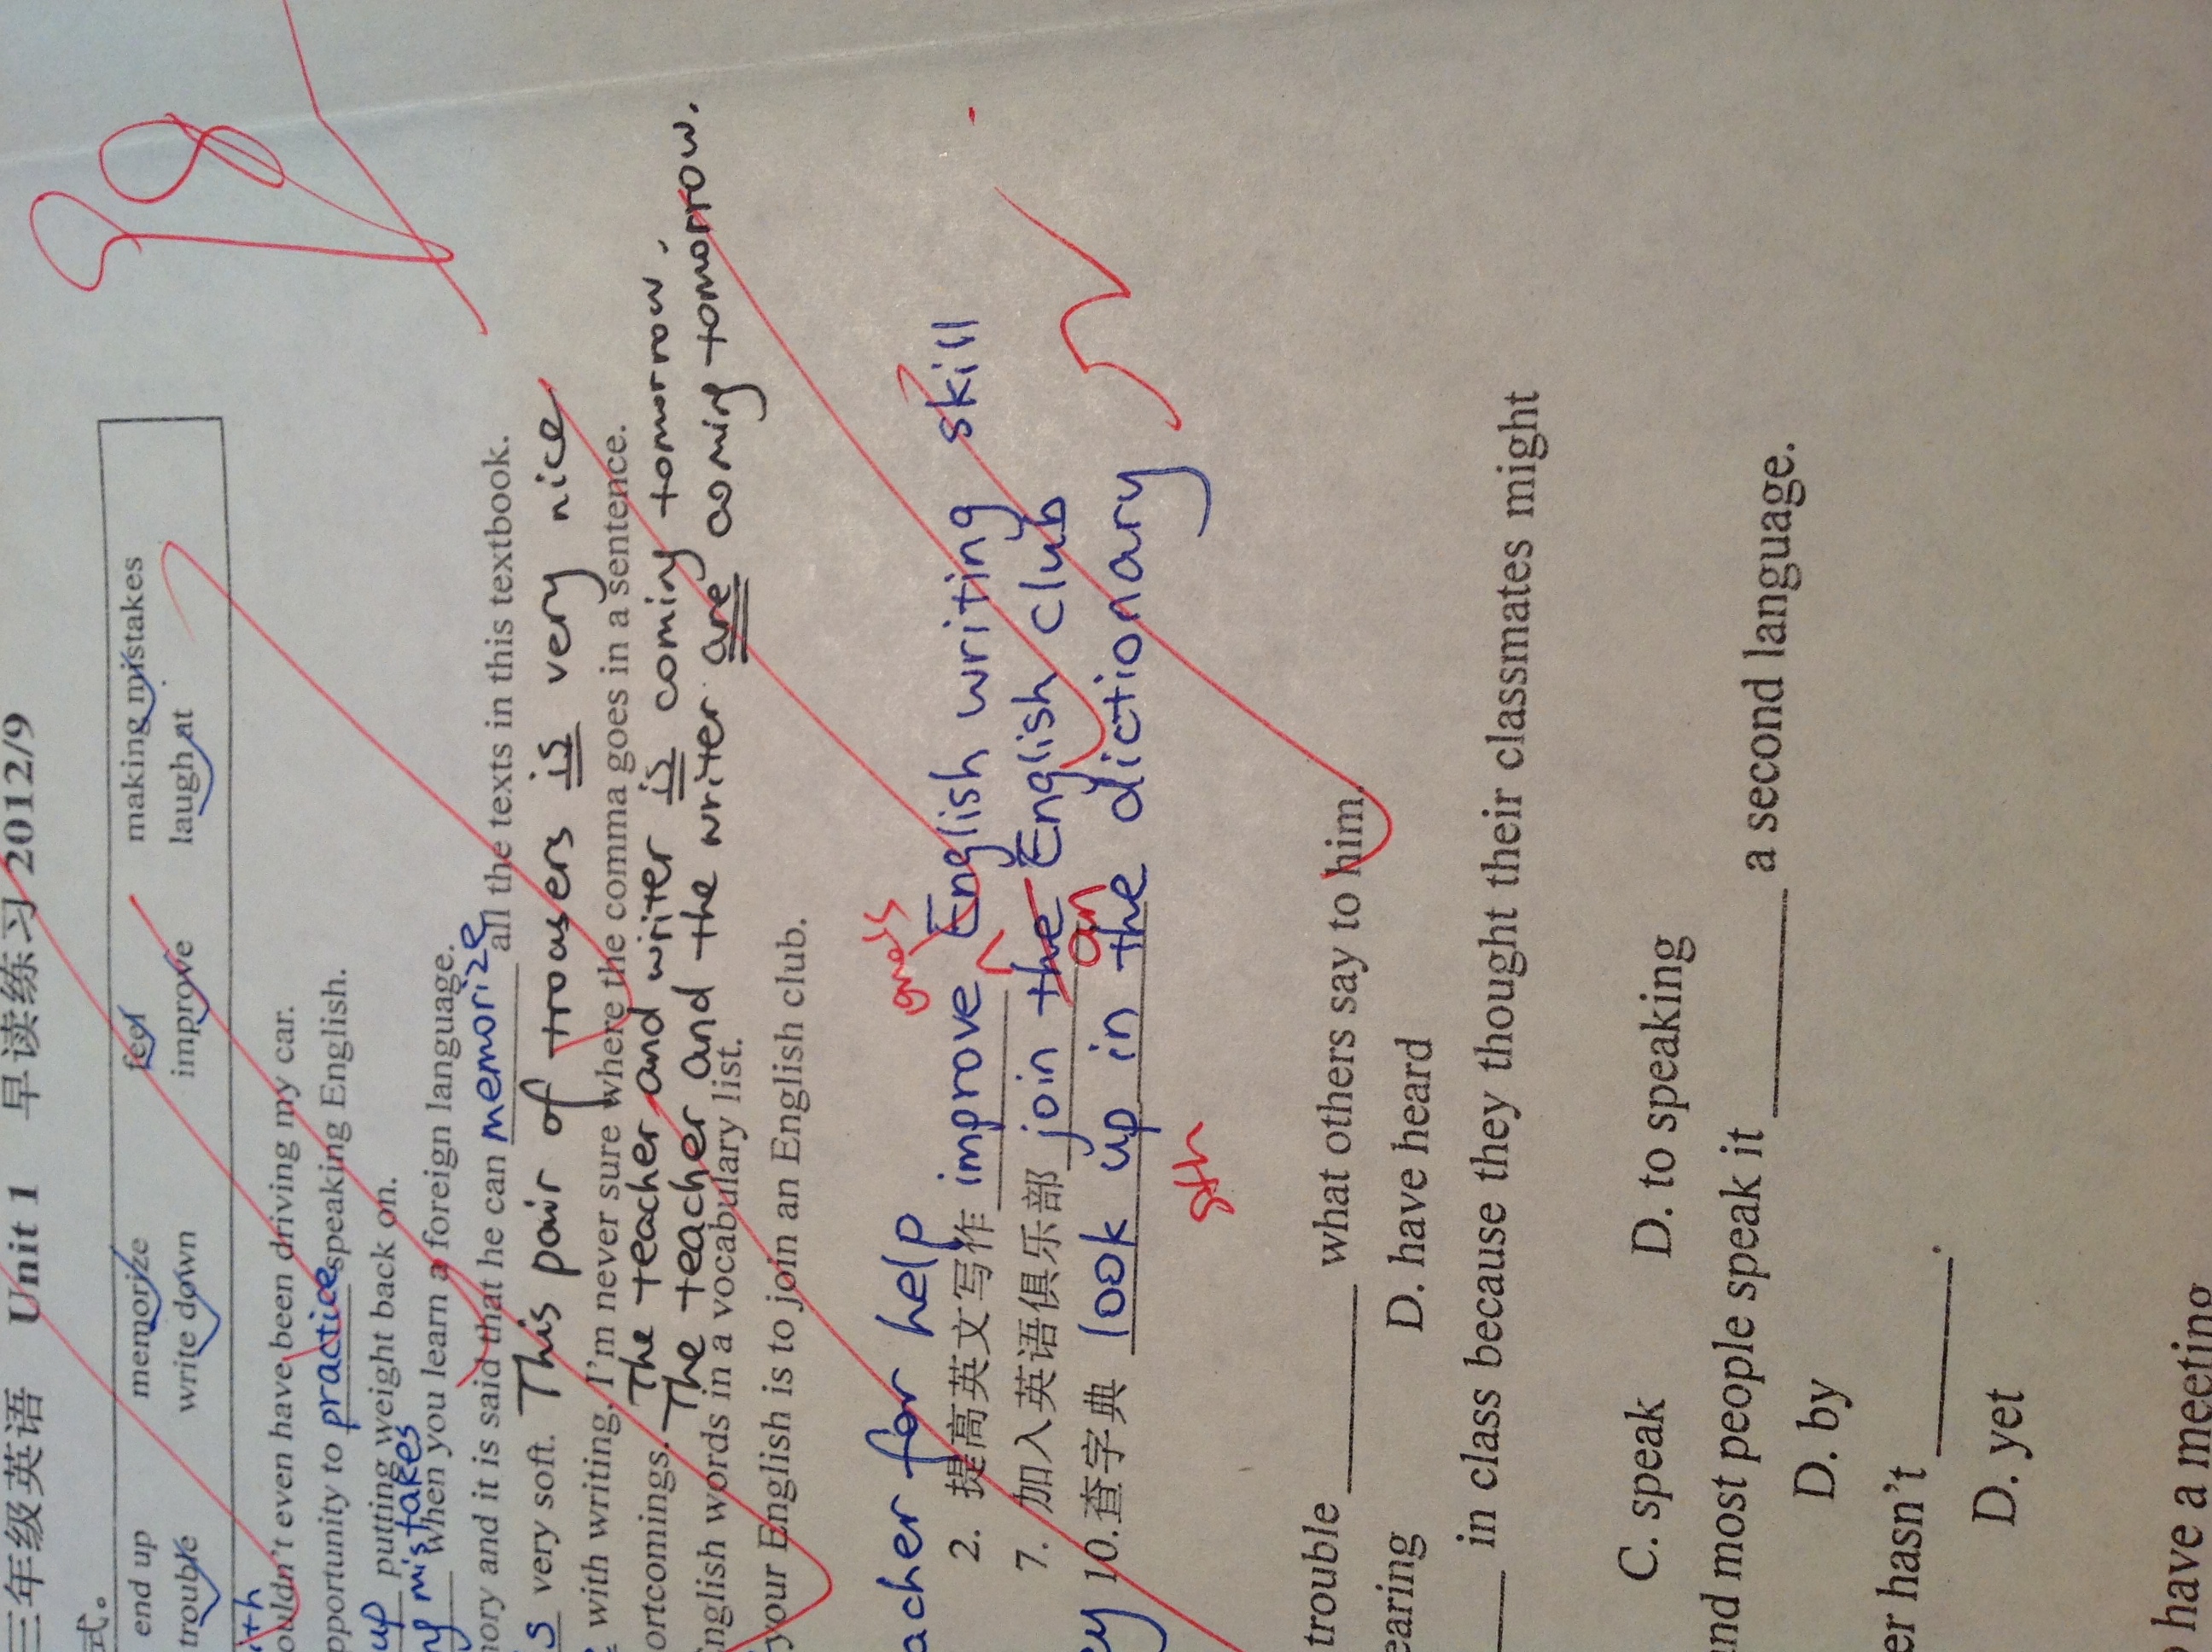 三年级英语 Unit 1 早读练习 2012/9
98
式。
end up memorize feel making mistakes
trouble write down improve laugh at
ith
ouldn't even have been driving my car.
pportunity to practice speaking English.
up putting weight back on.
mistakes
when you learn a foreign language.
ory and it is said that he can memorize all the texts in this textbook.
s very soft. This pair of trousers is very nice
with writing. I'm never sure where the comma goes in a sentence.
ortcomings. The teacher and writer is coming tomorrow.
The teacher and the writer are coming tomorrow.
nglish words in a vocabulary list.
your English is to join an English club.
acher for help
one's
2. 提高英文写作 improve English writing skill
7. 加入英语俱乐部 join the English club
an
ey 10.查字典 look up in the dictionary
sth
trouble ________ what others say to him.
earing D. have heard
____ in class because they thought their classmates might
C. speak D. to speaking
nd most people speak it ________ a second language.
D. by
er hasn't ________.
D. yet
have a meeting